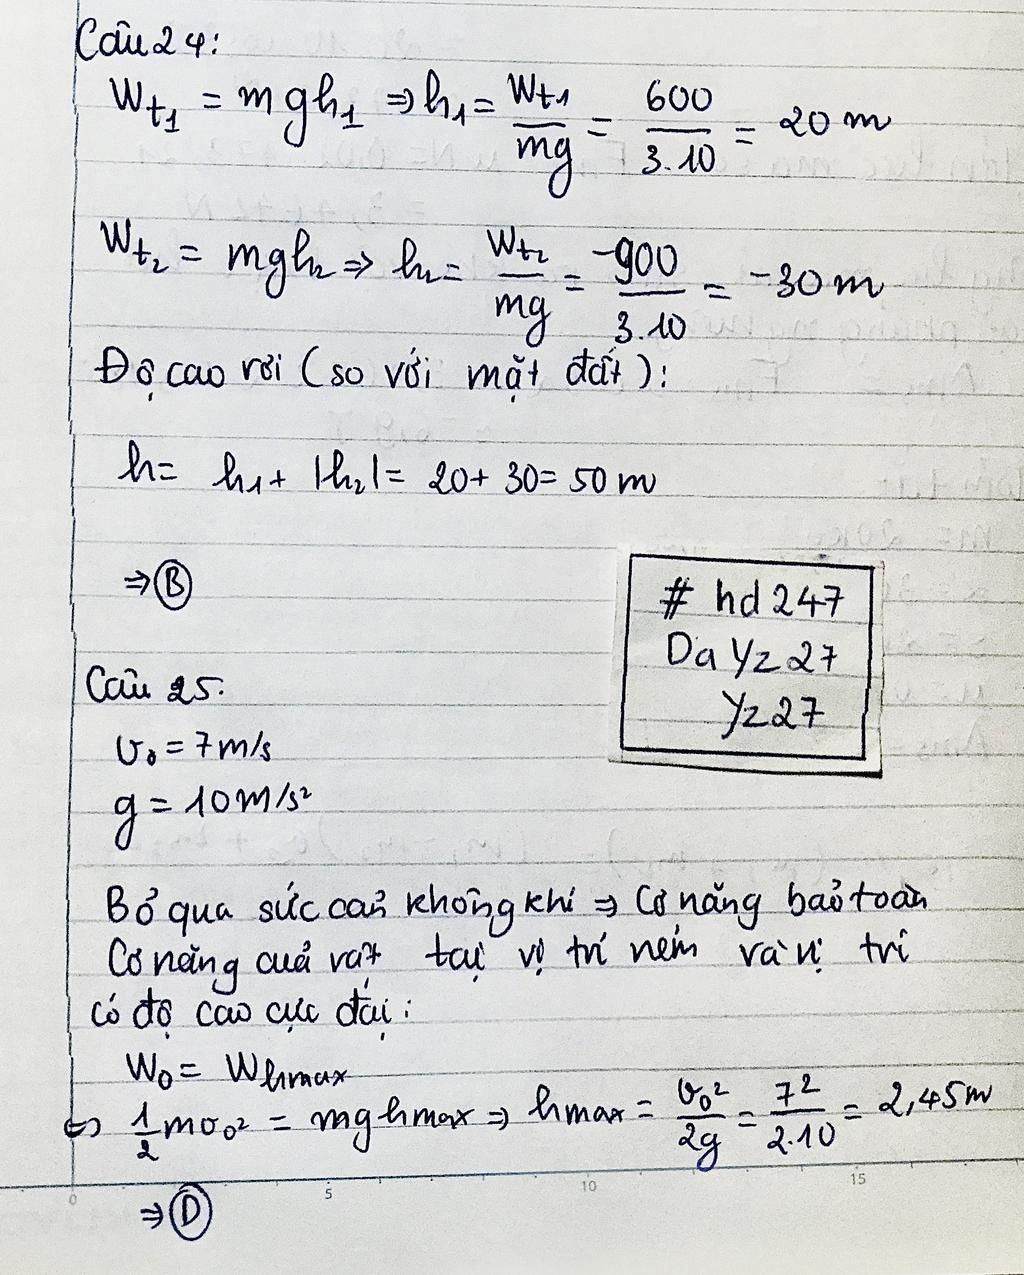 Câu 24:
Wt1 = mgh1 ⇒ h1 = Wt1/mg = 600/3.10 = 20 m
Wt2 = mgh2 ⇒ h2 = Wt2/mg = -900/3.10 = -30 m
Độ cao rơi (so với mặt đất):
h = h1 + |h2| = 20 + 30 = 50 m
⇒ B
# hd247
DaYz27
Yz27
Câu 25.
v0 = 7m/s
g = 10m/s²
Bỏ qua sức cản không khí ⇒ Cơ năng bảo toàn
Cơ năng của vật tại vị trí ném và vị trí
có độ cao cực đại:
W0 = Whmax
⇔ 1/2 mv0² = mghmax ⇒ hmax = v0²/2g = 7²/2.10 = 2,45m
0 5 10 15
⇒ D